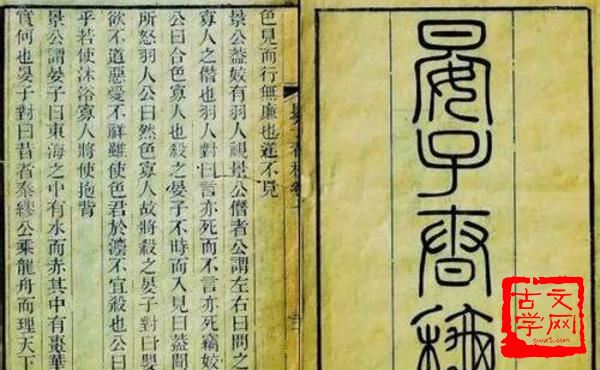 晏子春秋
古文学网
晏子春秋卷
色見而行無廉也遂不見
景公蓋姣有羽人視景公僭者公謂左右曰問之
寡人之僭也羽人對曰言亦死而不言亦死竊姣
公曰合色寡人也殺之晏子不時而入見曰蓋聞
所怒羽人公曰然色寡人故將殺之晏子對曰嬰
欲不道惡愛不祥雖使色君於灋不宜殺也公曰
乎若使沐浴寡人將使抱背
景公謂晏子曰東海之中有水而赤其中有棗華
實何也晏子對曰昔者秦繆公乘龍舟而理天下